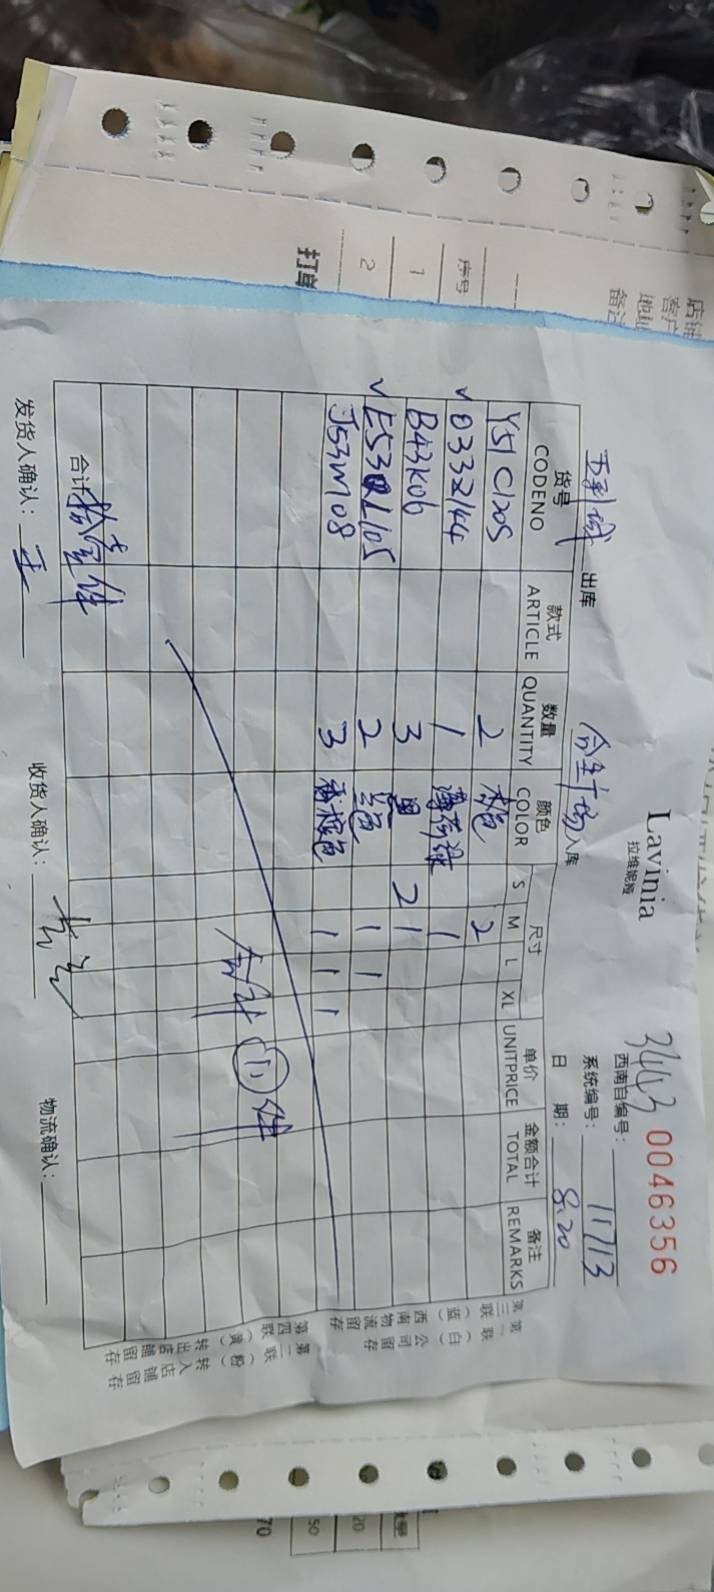 Lavinia
拉维妮娅
34443 0046356
西南自编号:
系统编号: 11713
出库 合生广场 入库 日 期: 8.20
货号 款式 数量 颜色 尺寸 单价 金额合计 备注
CODENO ARTICLE QUANTITY COLOR S M L XL UNITPRICE TOTAL REMARKS
Y51C1205 2 杏色 2
✓ 0332144 1 薄荷绿 1
B43K06 3 黑 2 1
✓ E532L105 2 兰色 1 1
J53M08 3 香槟色 1 1 1
合计 ⑪ 件
合计 拾壹件
发货人确认: 王 收货人确认: 物流确认:
第一联(白)公司留存
第三联(蓝)西南物流留存
第二联(粉)转入店铺留存
第四联(黄)转出店铺留存
店铺
客户
地址
备注
序号
1
2
打单
20
50
70